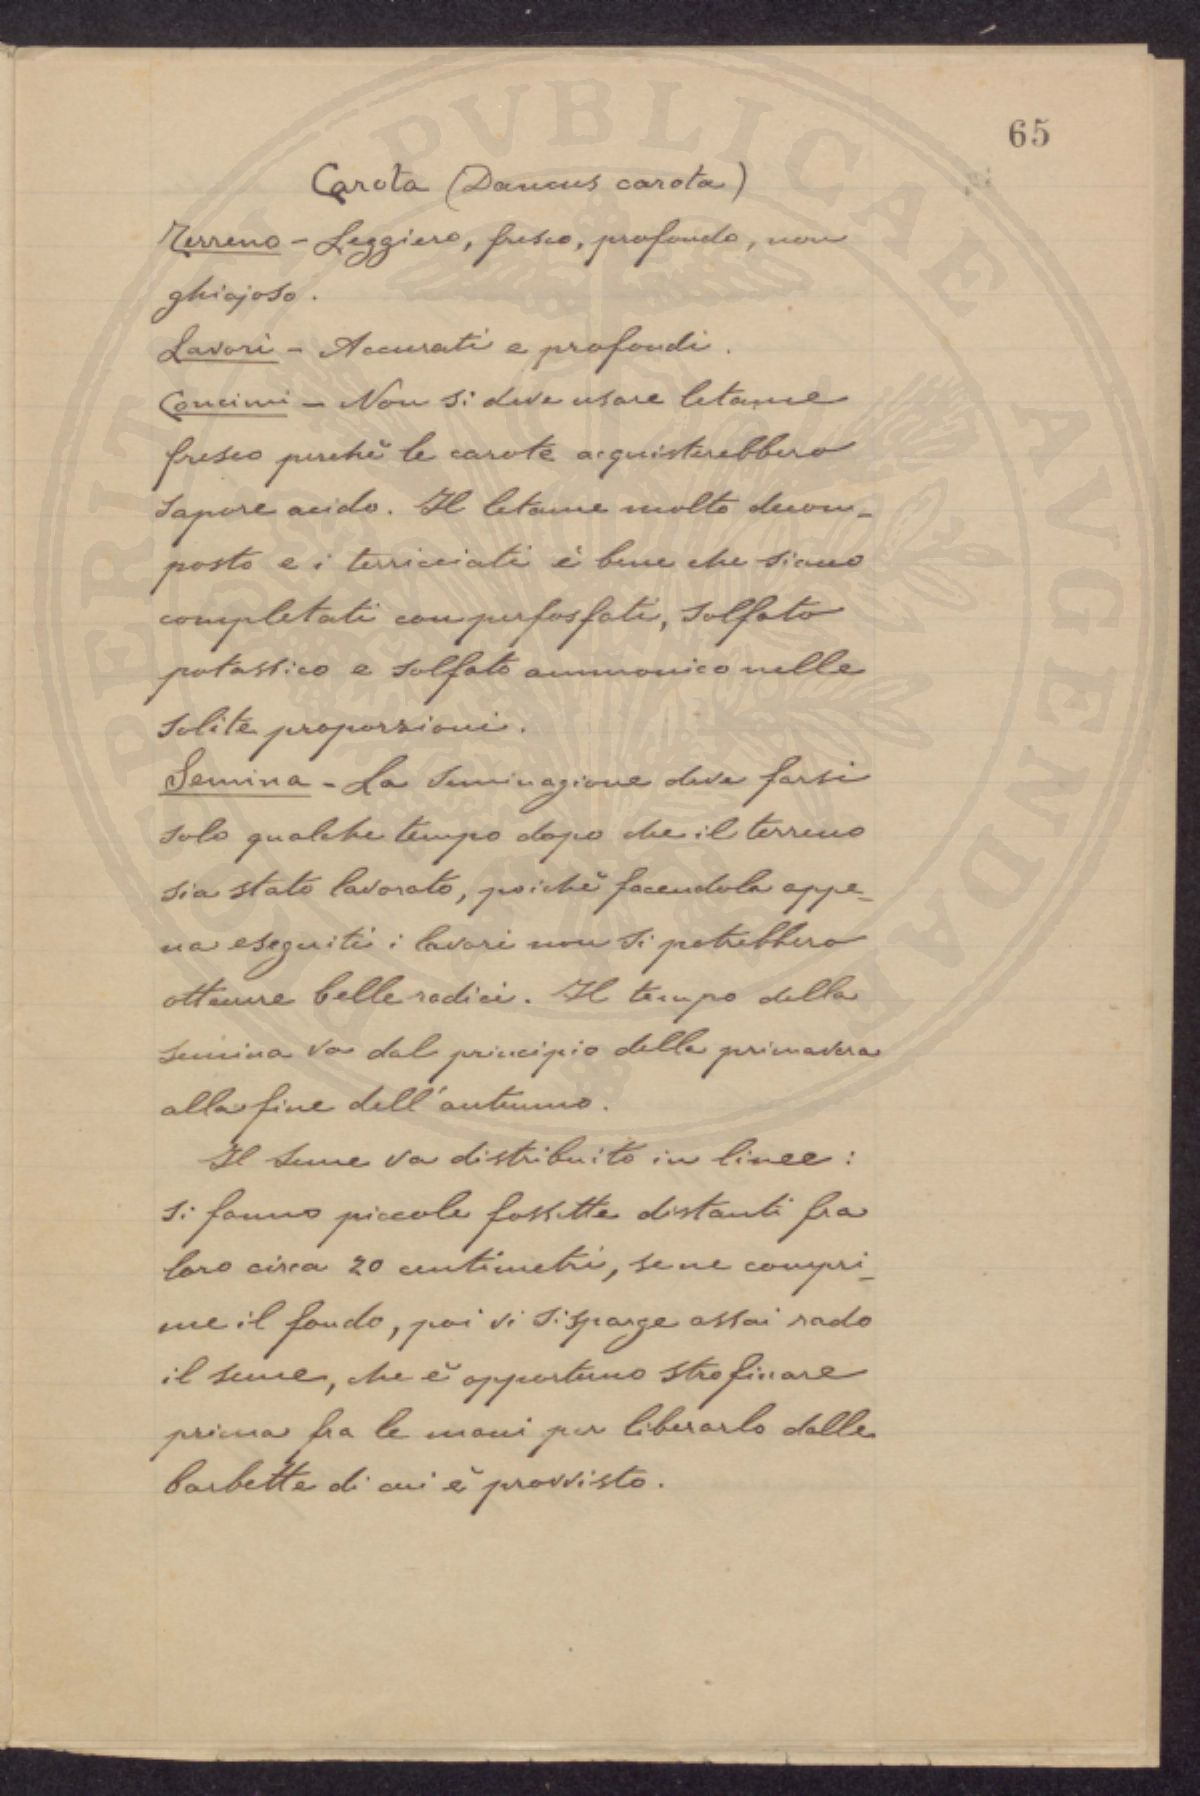 65
Carota (Daucus carota)
Terreno - Leggiero, fresco, profondo, non
ghiajoso.
Lavori - Accurati e profondi.
Concimi - Non si deve usare letame
fresco perchè le carote acquisterebbero
sapore acido. Il letame molto decom-
posto e i terricciati è bene che siano
completati con perfosfati, solfato
potassico e solfato ammonico nelle
solite proporzioni.
Semina - La seminagione deve farsi
solo qualche tempo dopo che il terreno
sia stato lavorato, poichè facendola appe-
na eseguiti i lavori non si potrebbero
ottenere belle radici. Il tempo della
semina va dal principio della primavera
alla fine dell'autunno.
Il seme va distribuito in linee:
si fanno piccole fossette distanti fra
loro circa 20 centimetri, se ne compri-
me il fondo, poi vi si sparge assai rado
il seme, che è opportuno strofinare
prima fra le mani per liberarlo dalle
barbette di cui è provvisto.